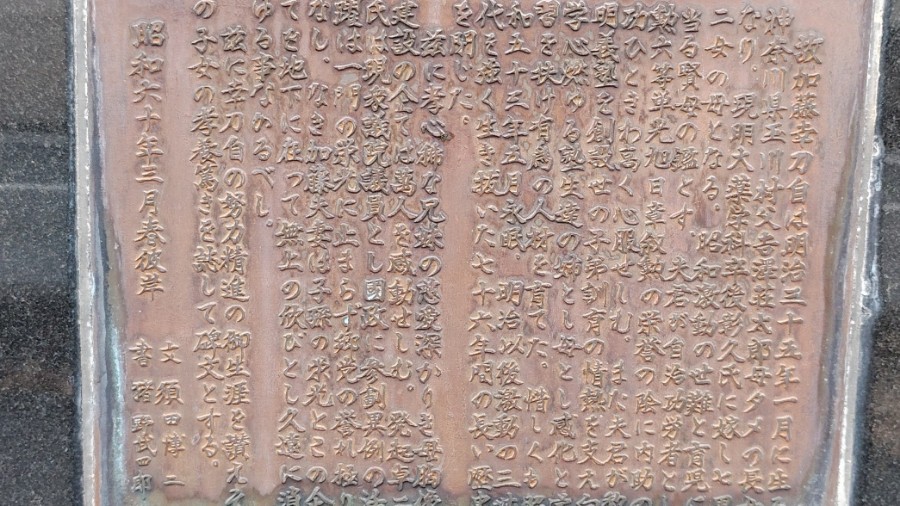 故加藤幸刀自は明治三十五年一月に生
神奈川県玉川村父吉澤荘太郎母タメの長
なり。現明大薬学科卒後彰久氏に嫁し七
二女の母となる。昭和激動の世難と育児に
当る賢母の鑑とす。夫君が自治功労者と
勲六等単光旭日章叙勲の栄誉の陰に内助
功ひときわ高く心服せしむ。また夫君が
明義塾を創設世の子弟訓育の情熱を支え
学心燃ゆる塾生達の姉とし母とし感化と
習を扶け有為の人材を育てた。惜しくも
和五十三年五月永眠。明治以後激動の三
代を強く生き抜いた七十六年間の長い歴
を閉じた。
茲に孝心綿な兄妹の恩愛深かりき母
建設の企ては萬人を感動せしむ。発起卓二
氏は現衆議院議員とし国政に参劃異例の
躍は一門の栄光に止まらず郷党の誉れ極
なし。なき加藤夫妻は子縣の栄光とこの
てを地下に在って無上の欣びとし久遠に消
ゆる事なかるべし。
茲に幸刀自の努力精進の御生涯を讃え
の子女の孝養篤きを誌して碑文とする。
昭和六十年三月春彼岸
文 須田博二
書 磯野武四郎